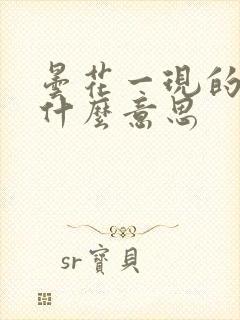 曇花一現的
什麼意思
sr寶貝